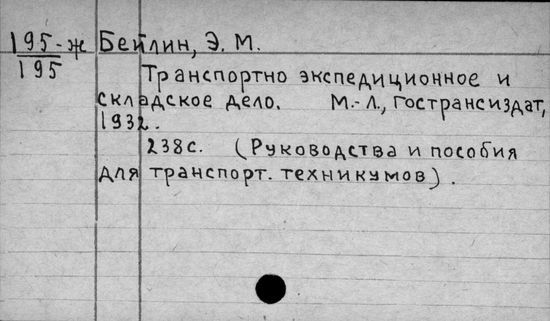 195-ж Бейлин, Э. М.
195
Транспортно экспедиционное и
складское дело. М.-Л., Гострансиздат,
1932.
238с. (Руководства и пособия
для транспорт. техникумов).